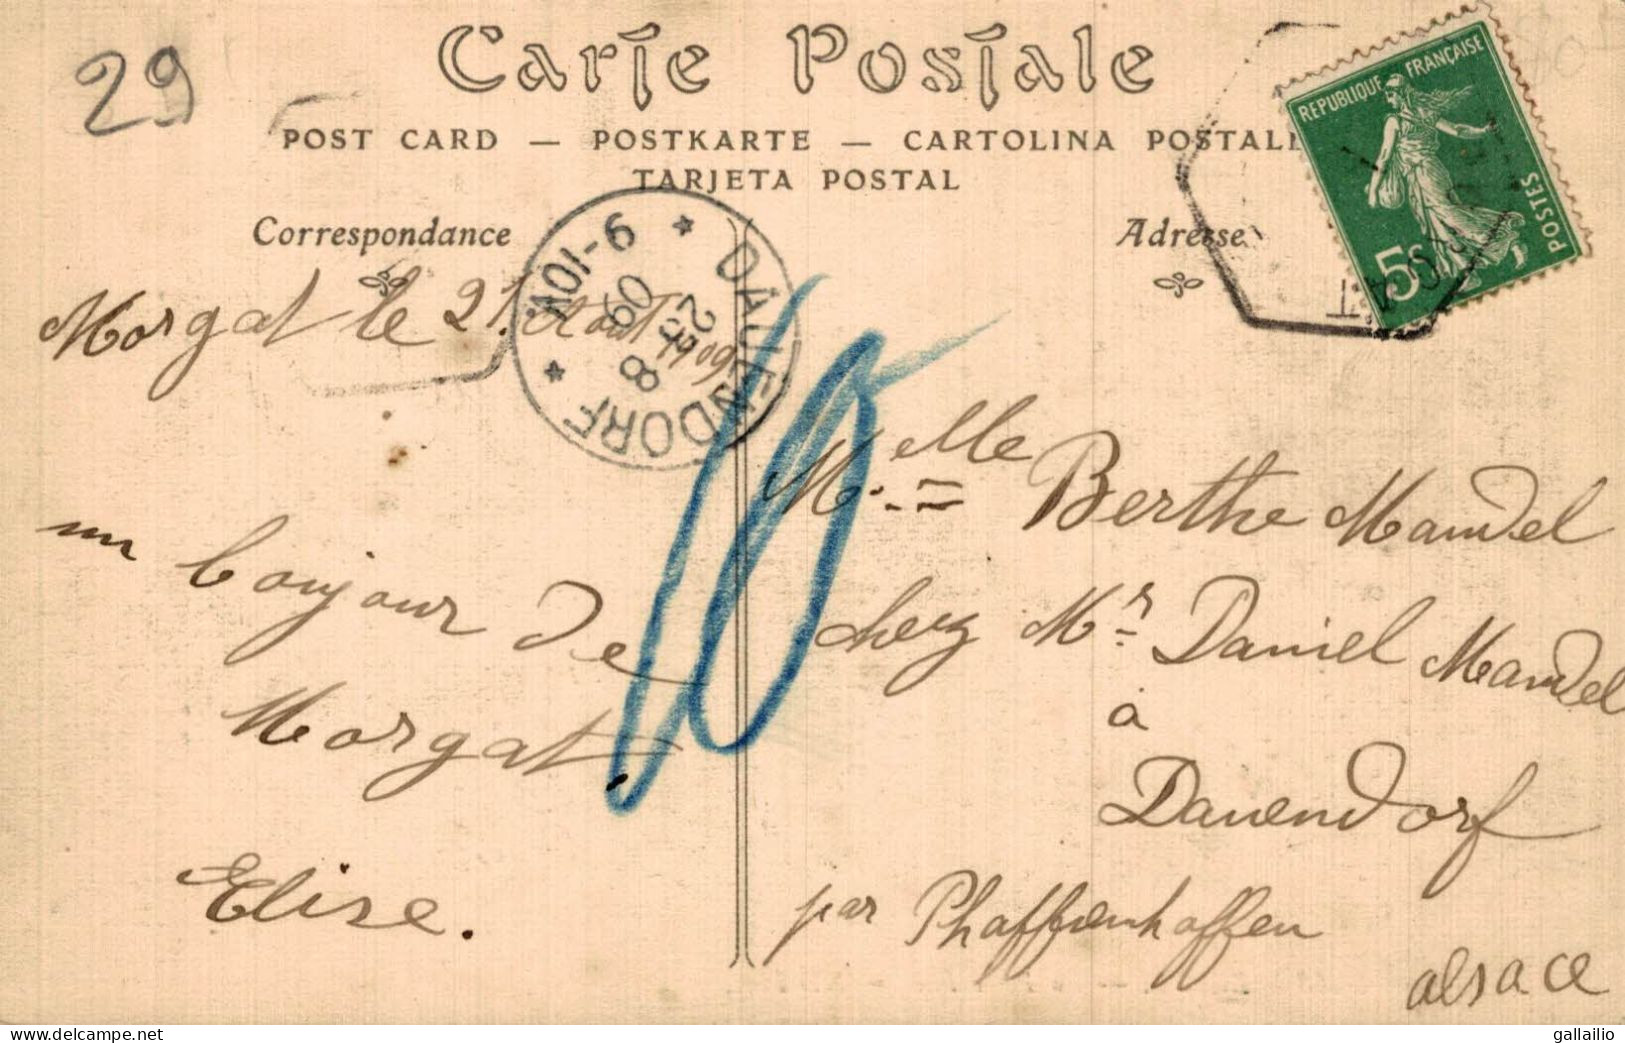 29
Carte Postale
POST CARD — POSTKARTE — CARTOLINA POSTALE
TARJETA POSTAL
REPUBLIQUE FRANÇAISE
POSTES
5c
Correspondance
Adresse
DAUENDORF
23 8 09
9-10V.
Morgat le 21 Août 1909
10
un bonjour de
Morgat.
Elise.
Melle Berthe Mandel
chez Mr Daniel Mandel
à
Dauendorf
par Phaffenhoffen
alsace
www.delcampe.net
gallailio